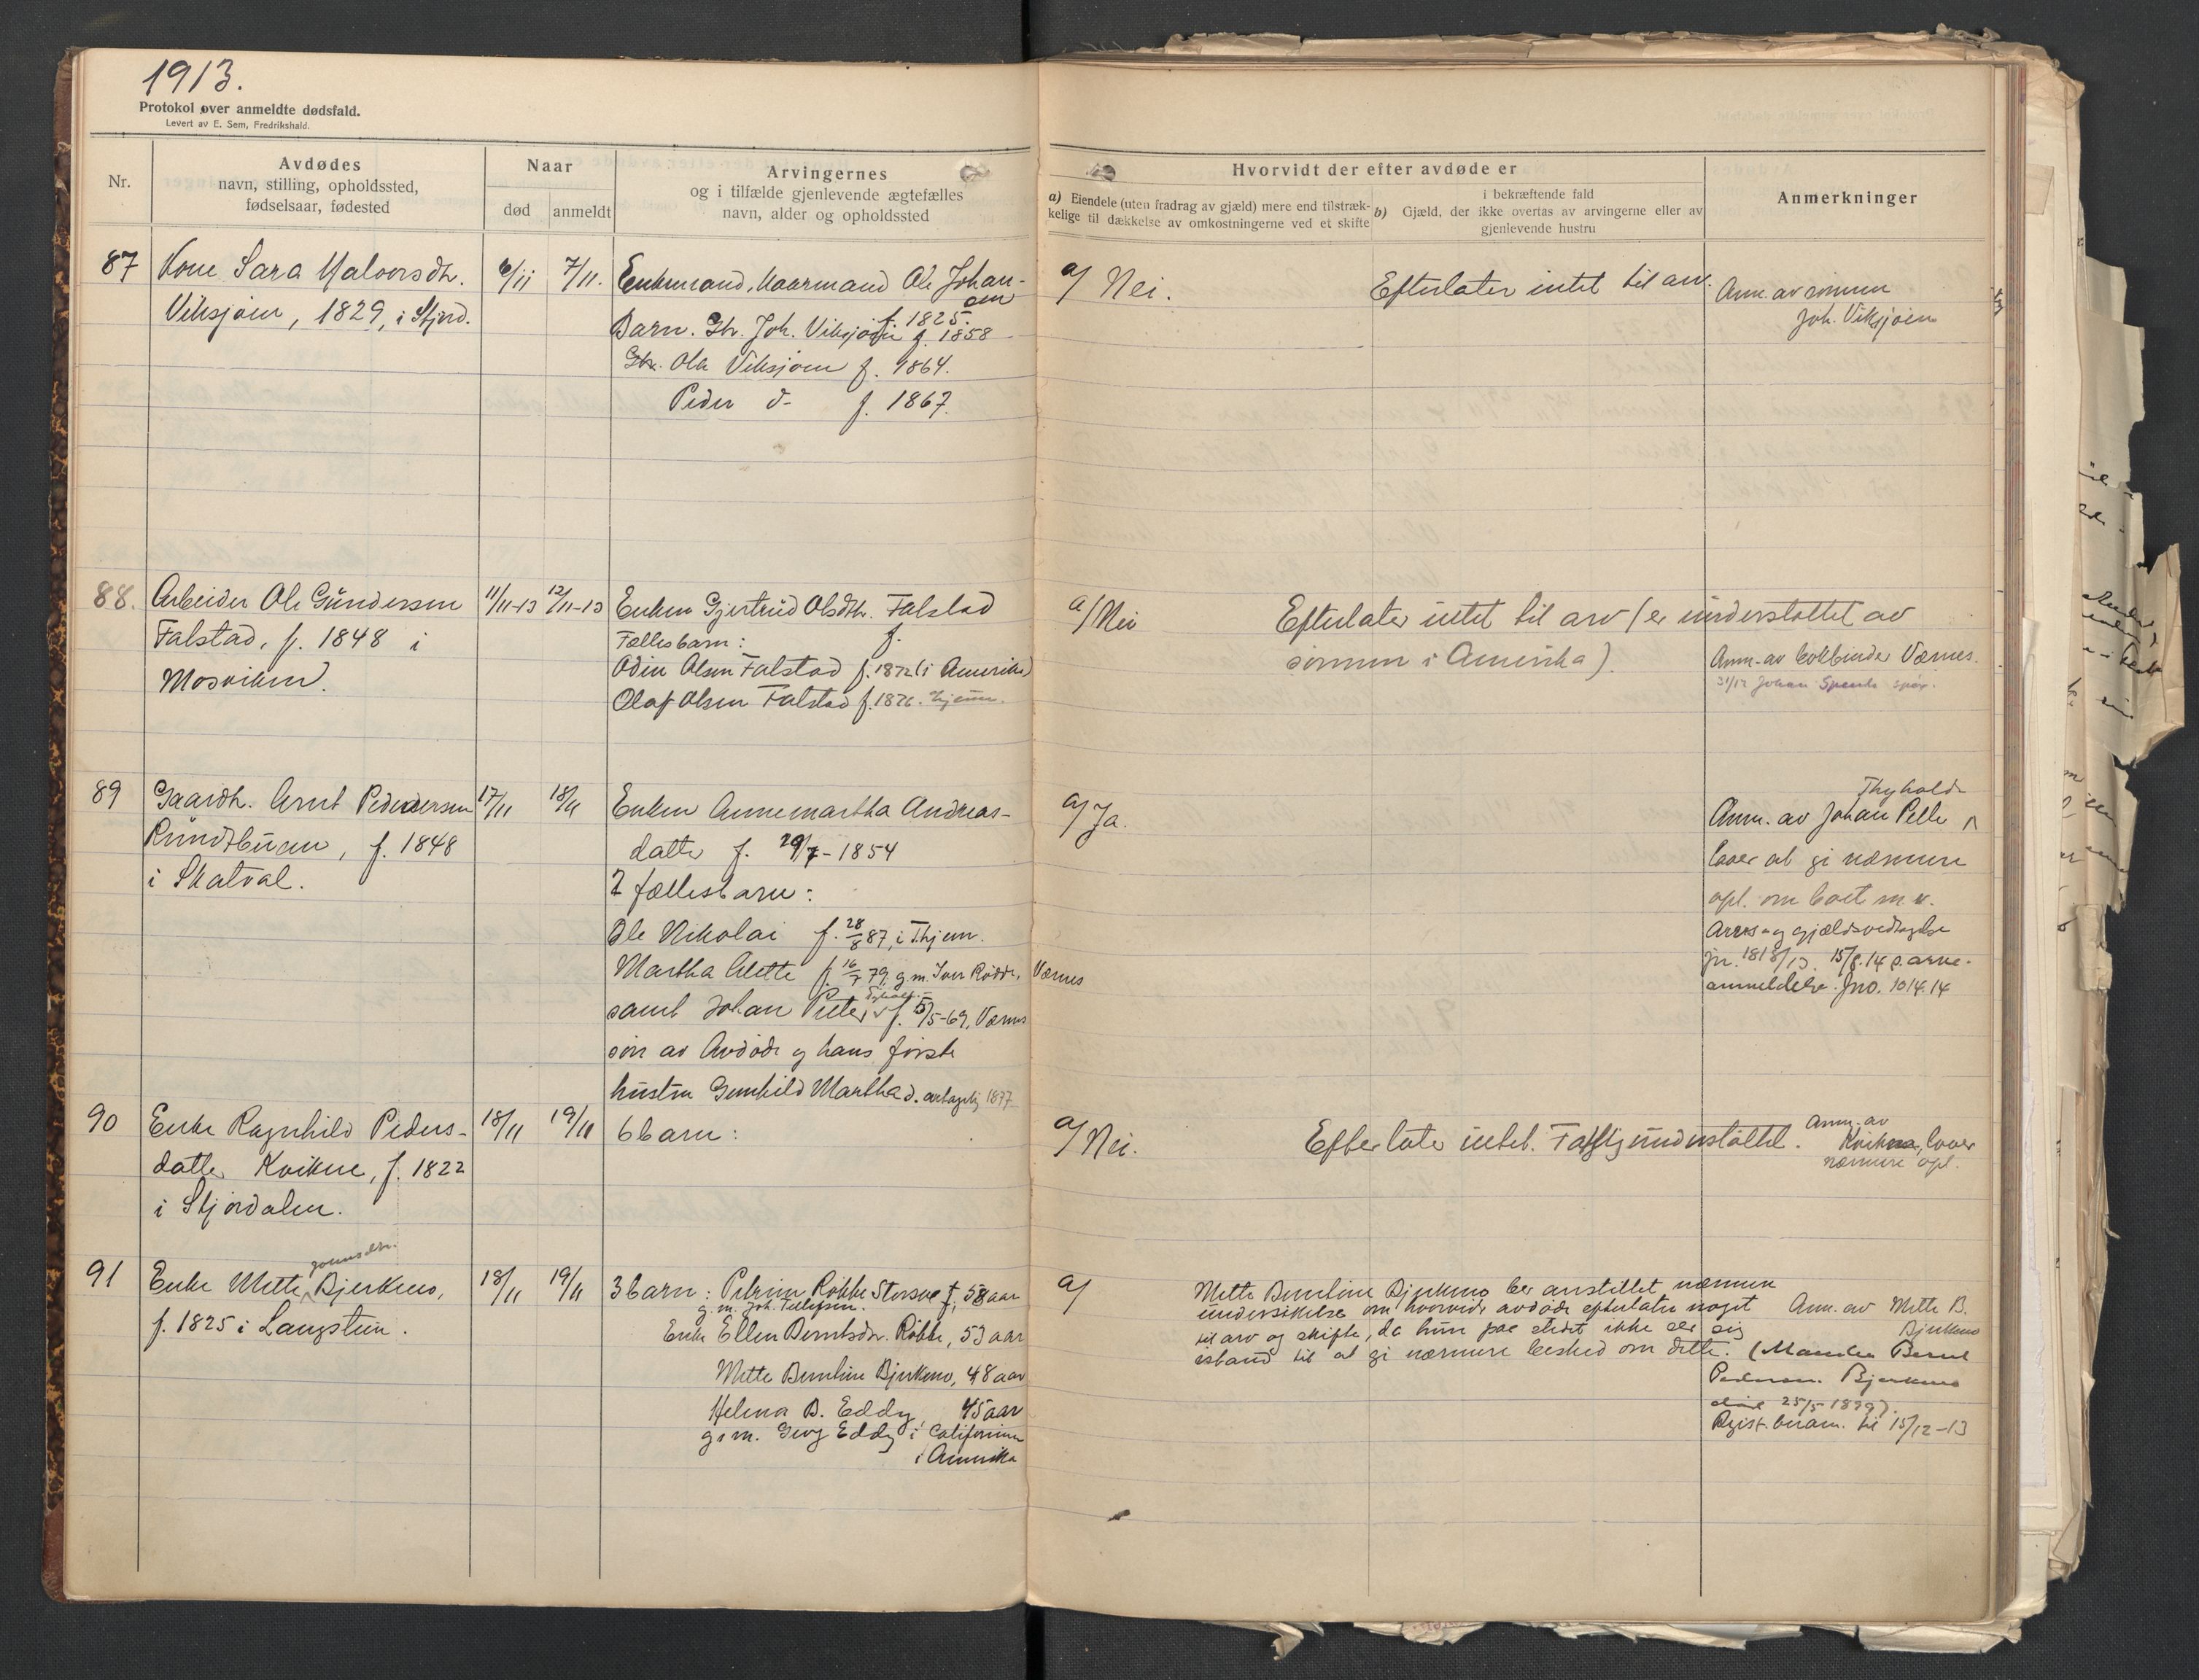 1913.
Protokol over anmeldte dødsfald.
Levert av E. Sem, Fredrikshald.
Nr.
Avdødes
navn, stilling, opholdssted,
fødselsaar, fødested
Naar
død
anmeldt
Arvingernes
og i tilfælde gjenlevende ægtefælles
navn, alder og opholdssted
Hvorvidt der efter avdøde er
a) Eiendele (uten fradrag av gjæld) mere end tilstræk-
kelige til dækkelse av omkostningerne ved et skifte
i bekræftende fald
b) Gjæld, der ikke overtas av arvingerne eller av
gjenlevende hustru
Anmerkninger
87
Kone Sara Halvorsdtr.
Viksjøen, 1829, i Stjrd.
6/11
7/11.
Enkemand, Kaarmand Ole Johan-
sen
f. 1825.
Barn. Gbr. Joh. Viksjøen f. 1858
Gbr. Ole Viksjøen f. 1864.
Peder d- f. 1867.
a/ Nei.
Efterlater intet til arv.
Anm. av sønnen
Joh. Viksjøen
88.
Arbeider Ole Gundersen
Falstad, f. 1848 i
Mosviken.
11/11-13
12/11-13
Enken Gjertrud Olsdtr. Falstad
Fællesbarn: f.
Odin Olsen Falstad f. 1872 (i Amerika)
Olaf Olsen Falstad f. 1876. hjemme.
a/ Nei
Efterlater intet til arv (er understøttet av
sønnen i Amerika).
Anm. av Værnes.
31/12 Johan
89
Gaardb. Arnt Pedersen
Rundtbuen, f. 1848
i Skatval.
17/11
18/11
Enken Annemartha Andreas-
datter f. 29/7-1854
2 fællesbarn:
Ole Nikolai f. 28/8 87, i Thjem.
Martha Alette f. 16/7 79, g.m. Iver Rødde, Værnes
samt Johan Peter f. 5/5-69, Værnes
søn av Avdøde og hans første
hustru Gunhild Martha d. antagelig 1877
a/ Ja.
Thyholdt
Anm. av Johan Petter
lover at gi nærmere
opl. om boet m.v.
Arvs- og gjældsvedtagelse
jr. 1818/13. 15/8.14 p. arve-
anmeldelse. Jno. 1014.14
90
Enke Ragnhild Peders-
datter Kvikne, f. 1822
i Stjørdalen.
18/11
19/11
6 barn:
a/ Nei.
Efterlater intet. Fattigunderstøttet.
Anm. av
Kvikne, lover
nærmere opl.
91
Jonsdtr.
Enke Mette Bjerkmo,
f. 1825 i Langstein.
18/11
19/11
3 barn: Petrine Røkke Storsve, 58 aar
g.m. Joh. Tellefsen.
Enke Ellen Berntsdr. Røkke, 53 aar
Mette Berntine Bjerkmo, 48 aar
Helena B. Eddy, 45 aar
g.m. Georg Eddy i Californien
i Amerika
a/
Mette Berntine Bjerkmo ber anstillet nærmere
undersøkelse om hvorvidt avdøde efterlater noget
til arv og skifte, da hun paa stedet ikke ser sig
istand til at gi nærmere besked om dette.
Anm. av Mette B.
Bjerkmo
(Manden Bernt
Pedersen Bjerkmo
døde 25/5 1899).
Regist. beram. til 15/12-13